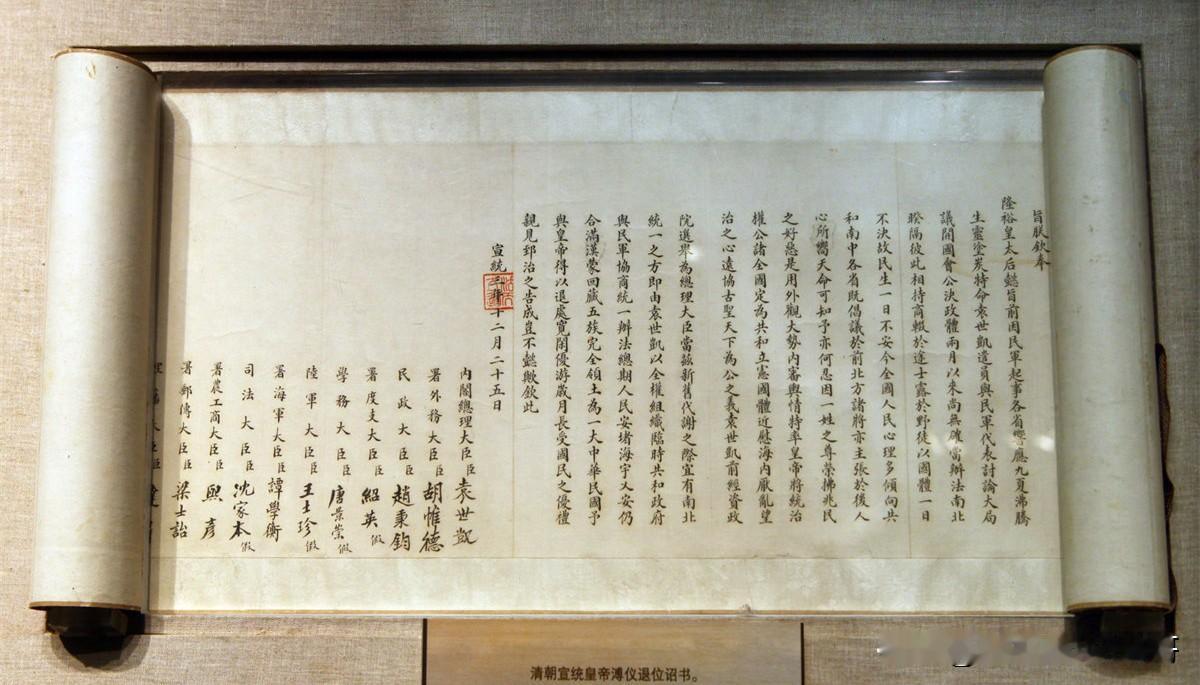 旨朕欽奉
隆裕皇太后懿旨前因民軍起事各省響應九夏沸騰
生靈塗炭特命袁世凱遣員與民軍代表討論大局
議開國會公決政體兩月以來尚無確當辦法南北
暌隔彼此相持商輟於途士露於野徒以國體一日
不決故民生一日不安今全國人民心理多傾向共
和南中各省既倡議於前北方諸將亦主張於後人
心所嚮天命可知予亦何忍因一姓之尊榮拂兆民
之好惡是用外觀大勢內審輿情特率皇帝將統治
權公諸全國定為共和立憲國體近慰海內厭亂望
治之心遠協古聖天下為公之義袁世凱前經資政
院選舉為總理大臣當茲新舊代謝之際宜有南北
統一之方即由袁世凱以全權組織臨時共和政府
與民軍協商統一辦法總期人民安堵海宇乂安仍
合滿漢蒙回藏五族完全領土為一大中華民國予
與皇帝得以退處寬閒優游歲月長受國民之優禮
親見郅治之告成豈不懿歟欽此
宣統三年十二月二十五日
內閣總理大臣臣袁世凱
署外務大臣臣胡惟德
民政大臣臣趙秉鈞
署度支大臣臣紹英假
學務大臣臣唐景崇假
陸軍大臣臣王士珍假
署海軍大臣臣譚學衡
司法大臣臣沈家本假
署農工商大臣臣熙彥
署郵傳大臣臣梁士詒
大臣臣
清朝宣统皇帝溥仪退位诏书。